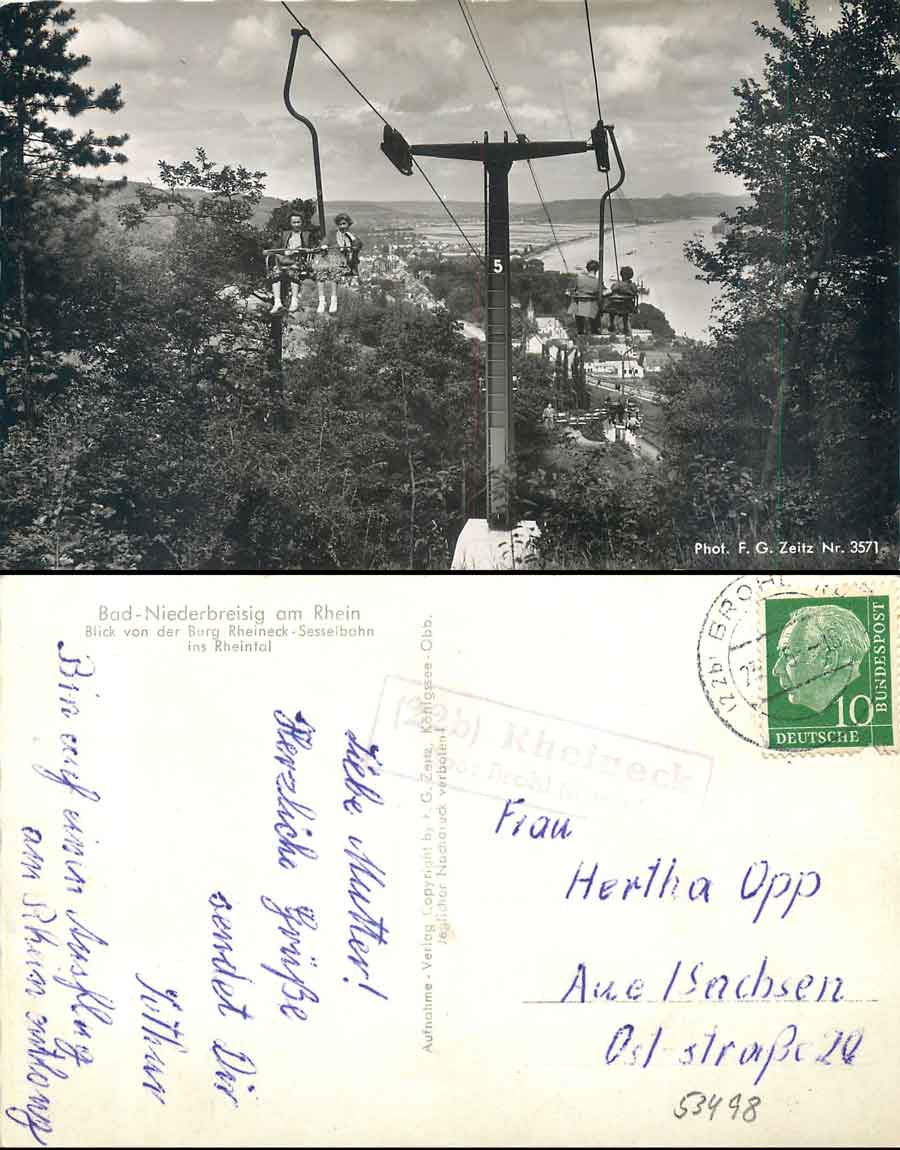 5
Phot. F. G. Zeitz Nr. 3571
Bad-Niederbreisig am Rhein
Blick von der Burg Rheineck-Sesselbahn
ins Rheintal
Liebe Mutter!
Herzliche Grüße
sendet Dir
Bin auf einen Ausflug
am Rhein entlang
Aufnahme-Verlag Copyright by F. G. Zeitz, Königssee-Obb.
Jeglicher Nachdruck verboten!
(22b) Rheineck
(22b) BROHL
10
DEUTSCHE
BUNDESPOST
Frau
Hertha Opp
Aue/Sachsen
Ost-straße 20
53498